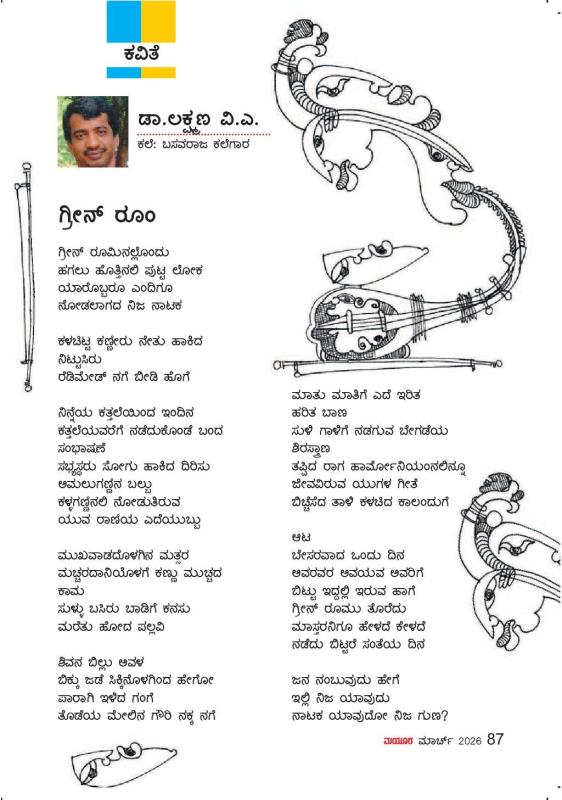 ಕವಿತೆ
ಡಾ.ಲಕ್ಷ್ಮಣ ವಿ.ಎ.
ಕಲೆ: ಬಸವರಾಜ ಕಲೆಗಾರ
ಗ್ರೀನ್ ರೂಂ
ಗ್ರೀನ್ ರೂಮಿನಲ್ಲೊಂದು
ಹಗಲು ಹೊತ್ತಿನಲಿ ಪುಟ್ಟ ಲೋಕ
ಯಾರೊಬ್ಬರೂ ಎಂದಿಗೂ
ನೋಡಲಾಗದ ನಿಜ ನಾಟಕ
ಕಳಚಿಟ್ಟ ಕಣ್ಣೀರು ನೇತು ಹಾಕಿದ
ನಿಟ್ಟುಸಿರು
ರೆಡಿಮೇಡ್ ನಗೆ ಬೀಡಿ ಹೊಗೆ
ನಿನ್ನೆಯ ಕತ್ತಲೆಯಿಂದ ಇಂದಿನ
ಕತ್ತಲೆಯವರೆಗೆ ನಡೆದುಕೊಂಡೆ ಬಂದ
ಸಂಭಾಷಣೆ
ಸಭ್ಯಸ್ಥರು ಸೋಗು ಹಾಕಿದ ದಿರಿಸು
ಅಮಲುಗಣ್ಣಿನ ಬಲ್ಬು
ಕಳ್ಳಗಣ್ಣಿನಲಿ ನೋಡುತಿರುವ
ಯುವ ರಾಣಿಯ ಎದೆಯುಬ್ಬು
ಮುಖವಾಡದೊಳಗಿನ ಮತ್ಸರ
ಮಚ್ಚರದಾನಿಯೊಳಗೆ ಕಣ್ಣು ಮುಚ್ಚದ
ಕಾಮ
ಸುಳ್ಳು ಬಸಿರು ಬಾಡಿಗೆ ಕನಸು
ಮರೆತು ಹೋದ ಪಲ್ಲವಿ
ಶಿವನ ಬಿಲ್ಲು ಅವಳ
ಬಿಕ್ಕು ಜಡೆ ಸಿಕ್ಕಿನೊಳಗಿಂದ ಹೇಗೋ
ಪಾರಾಗಿ ಇಳಿದ ಗಂಗೆ
ತೊಡೆಯ ಮೇಲಿನ ಗೌರಿ ನಕ್ಕ ನಗೆ
ಮಾತು ಮಾತಿಗೆ ಎದೆ ಇರಿತ
ಹರಿತ ಬಾಣ
ಸುಳಿ ಗಾಳಿಗೆ ನಡಗುವ ಬೇಗಡೆಯ
ಶಿರಸ್ತ್ರಾಣ
ತಪ್ಪಿದ ರಾಗ ಹಾರ್ಮೋನಿಯಂನಲಿನ್ನೂ
ಜೀವವಿರುವ ಯುಗಳ ಗೀತೆ
ಬಿಚ್ಚಿಸೆದ ತಾಳಿ ಕಳಚಿದ ಕಾಲಂದುಗೆ
ಆಟ
ಬೇಸರವಾದ ಒಂದು ದಿನ
ಅವರವರ ಅವಯವ ಅವರಿಗೆ
ಬಿಟ್ಟು ಇದ್ದಲ್ಲಿ ಇರುವ ಹಾಗೆ
ಗ್ರೀನ್ ರೂಮು ತೊರೆದು
ಮಾಸ್ತರನಿಗೂ ಹೇಳದೆ ಕೇಳದೆ
ನಡೆದು ಬಿಟ್ಟರೆ ಸಂತೆಯ ದಿನ
ಜನ ನಂಬುವುದು ಹೇಗೆ
ಇಲ್ಲಿ ನಿಜ ಯಾವುದು
ನಾಟಕ ಯಾವುದೋ ನಿಜ ಗುಣ?
ಮಯೂರ ಮಾರ್ಚ್ 2026 87